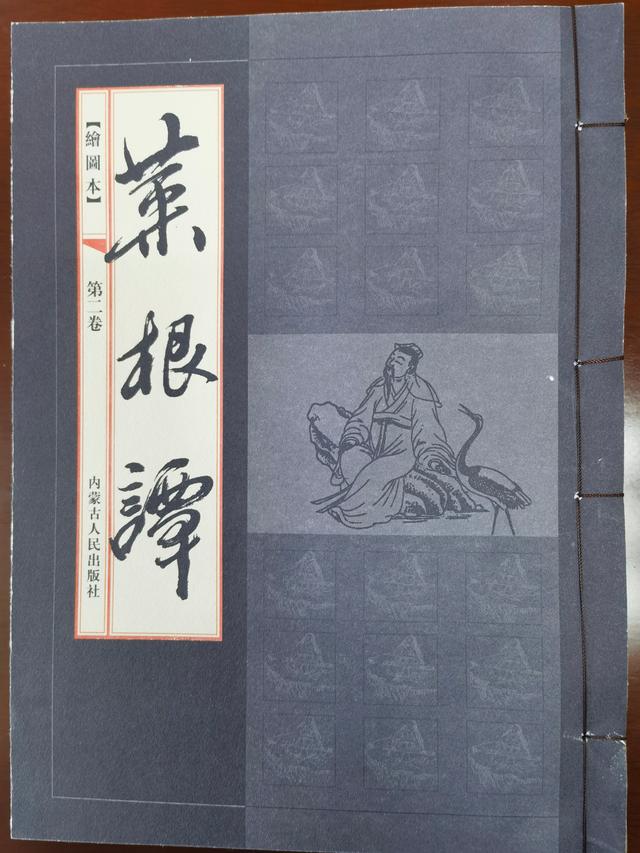 菜根譚
【繪圖本】
第二卷
内蒙古人民出版社